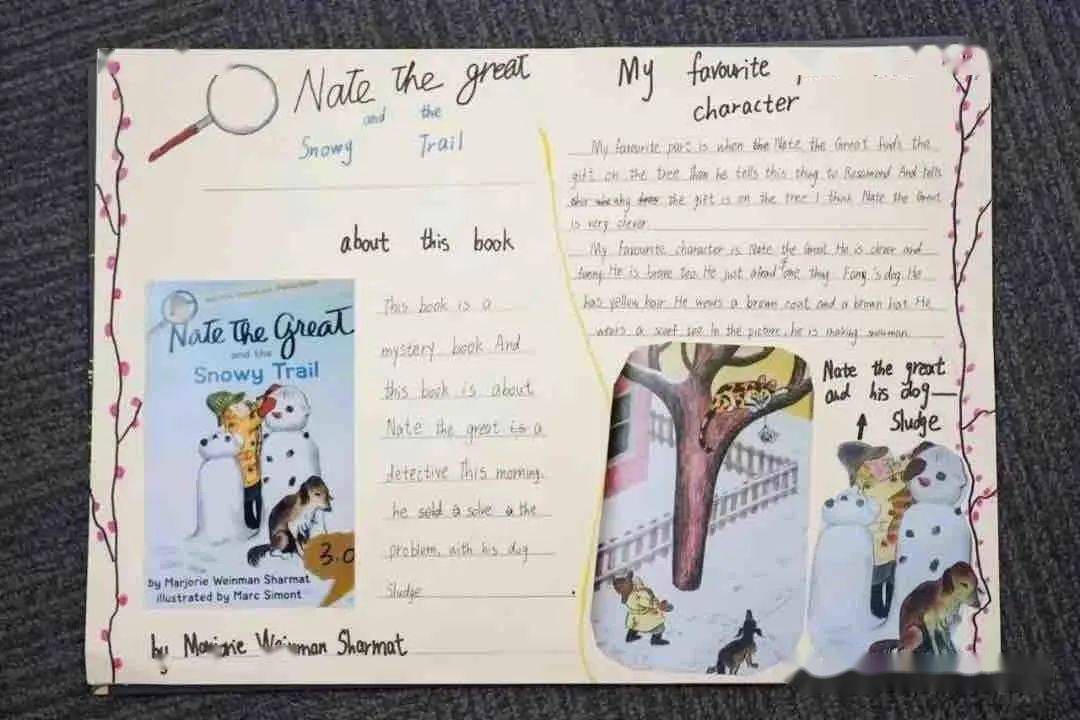 Nate the great
and the
Snowy Trail
about this book
Nate the Great
and the
Snowy Trail
3.0
by Marjorie Weinman Sharmat
illustrated by Marc Simont
This book is a
mystery book And
this book is about
Nate the great is a
detective This morning.
he sold a solve a the
problem, with his dog
Sludge
by Marjorie Weinman Sharmat
My favourite
character
My favourite part is when the Nate the Great finds the
gift on the tree Then he tells this thing to Rosamond And tells
why the gift is on the tree I think Nate the Great
is very clever.
My favourite character is Nate the Great. He is clever and
funny. He is brave too. He just afraid of one thing Fang's dog. He
has yellow hair. He wears a brown coat and a brown hat. He
wears a scarf too In the picture, he is making snowman.
Nate the great
and his dog—
Sludge